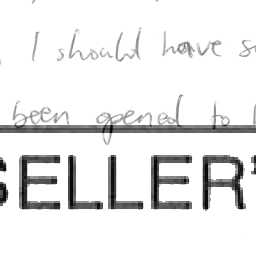 I should have
been opened to
SELLER'